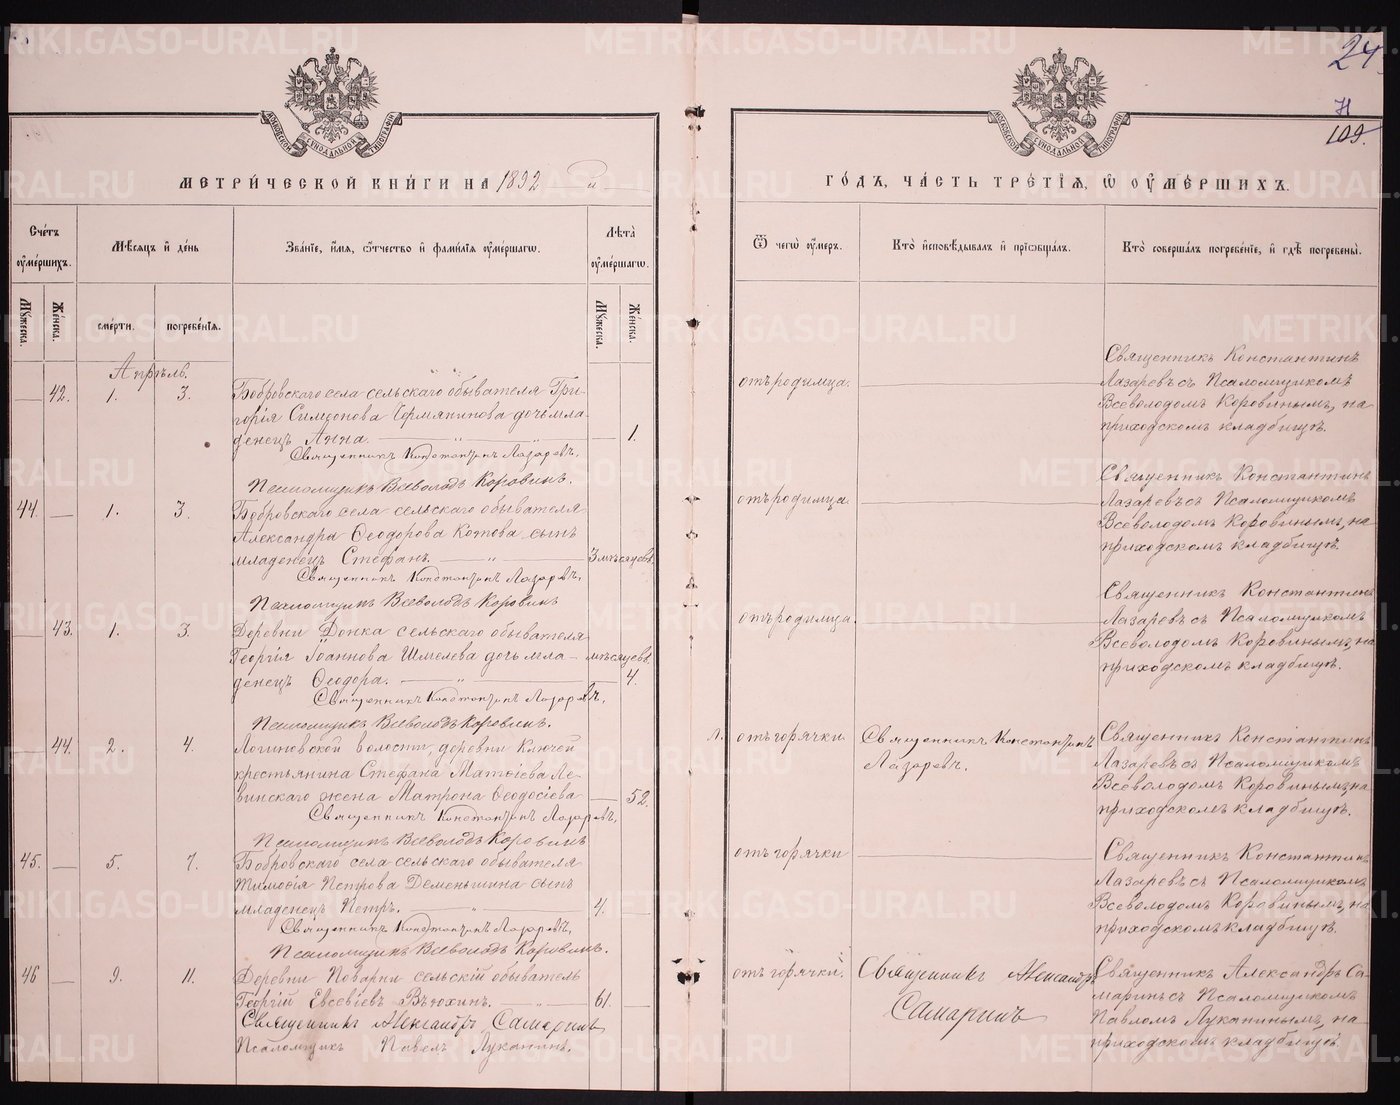 24
Н
109.
МОСКОВСКОЙ СѴНОДАЛЬНОЙ ТИПОГРАФІИ
МОСКОВСКОЙ СѴНОДАЛЬНОЙ ТИПОГРАФІИ
МЕТРИ́ЧЕСКОЙ КНИ́ГИ НА 1892 й
ГО́ДЪ, ЧА́СТЬ ТРЕ́ТІѦ, Ѡ ОУМЕ́РШИХЪ.
Сче́тъ оумє́ршихъ.
Мѣ́сяцъ и҆ де́нь
Зва́нїе, и҆́мя, ѻ҆́тчество и҆ фами́лїя оуме́ршагѡ.
Лѣ́та оуме́ршагѡ.
Ѿ чегѡ̀ оу́меръ.
Кто̀ и҆сповѣ́дывалъ и҆ прїѡбща́лъ.
Кто̀ соверша́лъ погребе́нїе, и҆ гдѣ̀ погребены̀.
Му́жеска.
Же́нска.
сме́рти.
погребе́нїя.
Му́жеска.
Же́нска.
Апрѣль.
42. 1. 3. Бобровскаго села сельскаго обывателя Гри-
горія Симеонова Чермянинова дочь мла-
денецъ Анна. 1.
Священникъ Константинъ Лазаревъ,
Псаломщикъ Всеволодъ Коровинъ.
отъ родимца.
Священникъ Константинъ
Лазаревъ съ Псаломщикомъ
Всеволодомъ Коровинымъ, на
приходскомъ кладбищѣ.
44. 1. 3. Бобровскаго села сельскаго обывателя
Александра Ѳеодорова Котова сынъ
младенецъ Стефанъ. 3 мѣсяцевъ.
Священникъ Константинъ Лазаревъ,
Псаломщикъ Всеволодъ Коровинъ
отъ родимца.
Священникъ Константинъ
Лазаревъ съ Псаломщикомъ
Всеволодомъ Коровинымъ, на
приходскомъ кладбищѣ.
43. 1. 3. Деревни Донка сельскаго обывателя
Георгія Іоаннова Шмелева дочь мла- мѣсяцевъ
денецъ Ѳеодора. 4.
Священникъ Константинъ Лазаревъ,
Псаломщикъ Всеволодъ Коровинъ.
отъ родимца.
Священникъ Константинъ
Лазаревъ съ Псаломщикомъ
Всеволодомъ Коровинымъ, на
приходскомъ кладбищѣ.
44. 2. 4. Логиновской волости, деревни Ключей
крестьянина Стефана Матѳіева Ле-
винскаго жена Матрона Ѳеодосіева 52.
Священникъ Константинъ Лазаревъ,
Псаломщикъ Всеволодъ Коровинъ
отъ горячки.
Священникъ Константинъ
Лазаревъ.
Священникъ Константинъ
Лазаревъ съ Псаломщикомъ
Всеволодомъ Коровинымъ, на
приходскомъ кладбищѣ.
45. 5. 7. Бобровскаго села сельскаго обывателя
Тимоѳія Петрова Деменьшина сынъ
младенецъ Петръ. 4.
Священникъ Константинъ Лазаревъ,
Псаломщикъ Всеволодъ Коровинъ.
отъ горячки
Священникъ Константинъ
Лазаревъ съ Псаломщикомъ
Всеволодомъ Коровинымъ, на
приходскомъ кладбищѣ.
46 9. 11. Деревни Поварни сельскій обыватель
Георгій Евсевіевъ Вьюхинъ. 61.
Священникъ Александръ Самаринъ
Псаломщикъ Павелъ Луканинъ.
отъ горячки.
Священникъ Александръ
Самаринъ
Священникъ Александръ Са-
маринъ съ Псаломщикомъ
Павломъ Луканинымъ, на
приходскомъ кладбищѣ.
METRIKI.GASO-URAL.RU